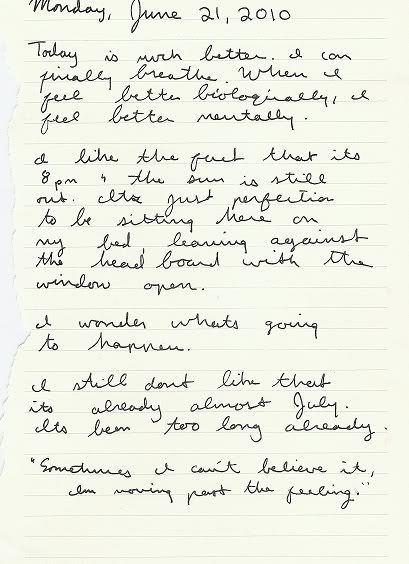 Monday, June 21, 2010
Today is much better. I can
finally breathe. When I
feel better biologically, I
feel better mentally.
I like the fact that its
8pm & the sun is still
out. Its just perfection
to be sitting here on
my bed, leaning against
the head board with the
window open.
I wonder whats going
to happen.
I still dont like that
its already almost July.
Its been too long already.
"Sometimes I can't believe it,
Im moving past the feeling."